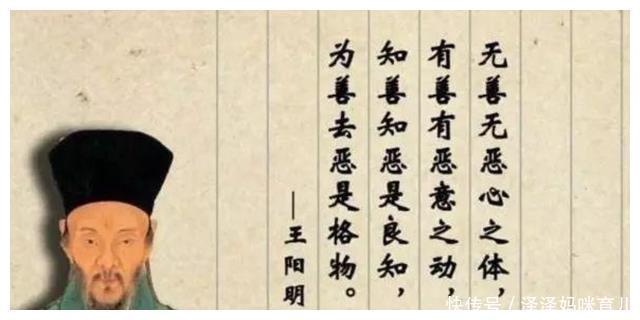 无善无恶心之体，
有善有恶意之动，
知善知恶是良知，
为善去恶是格物。
—王阳明
快传号／泽泽妈咪育儿